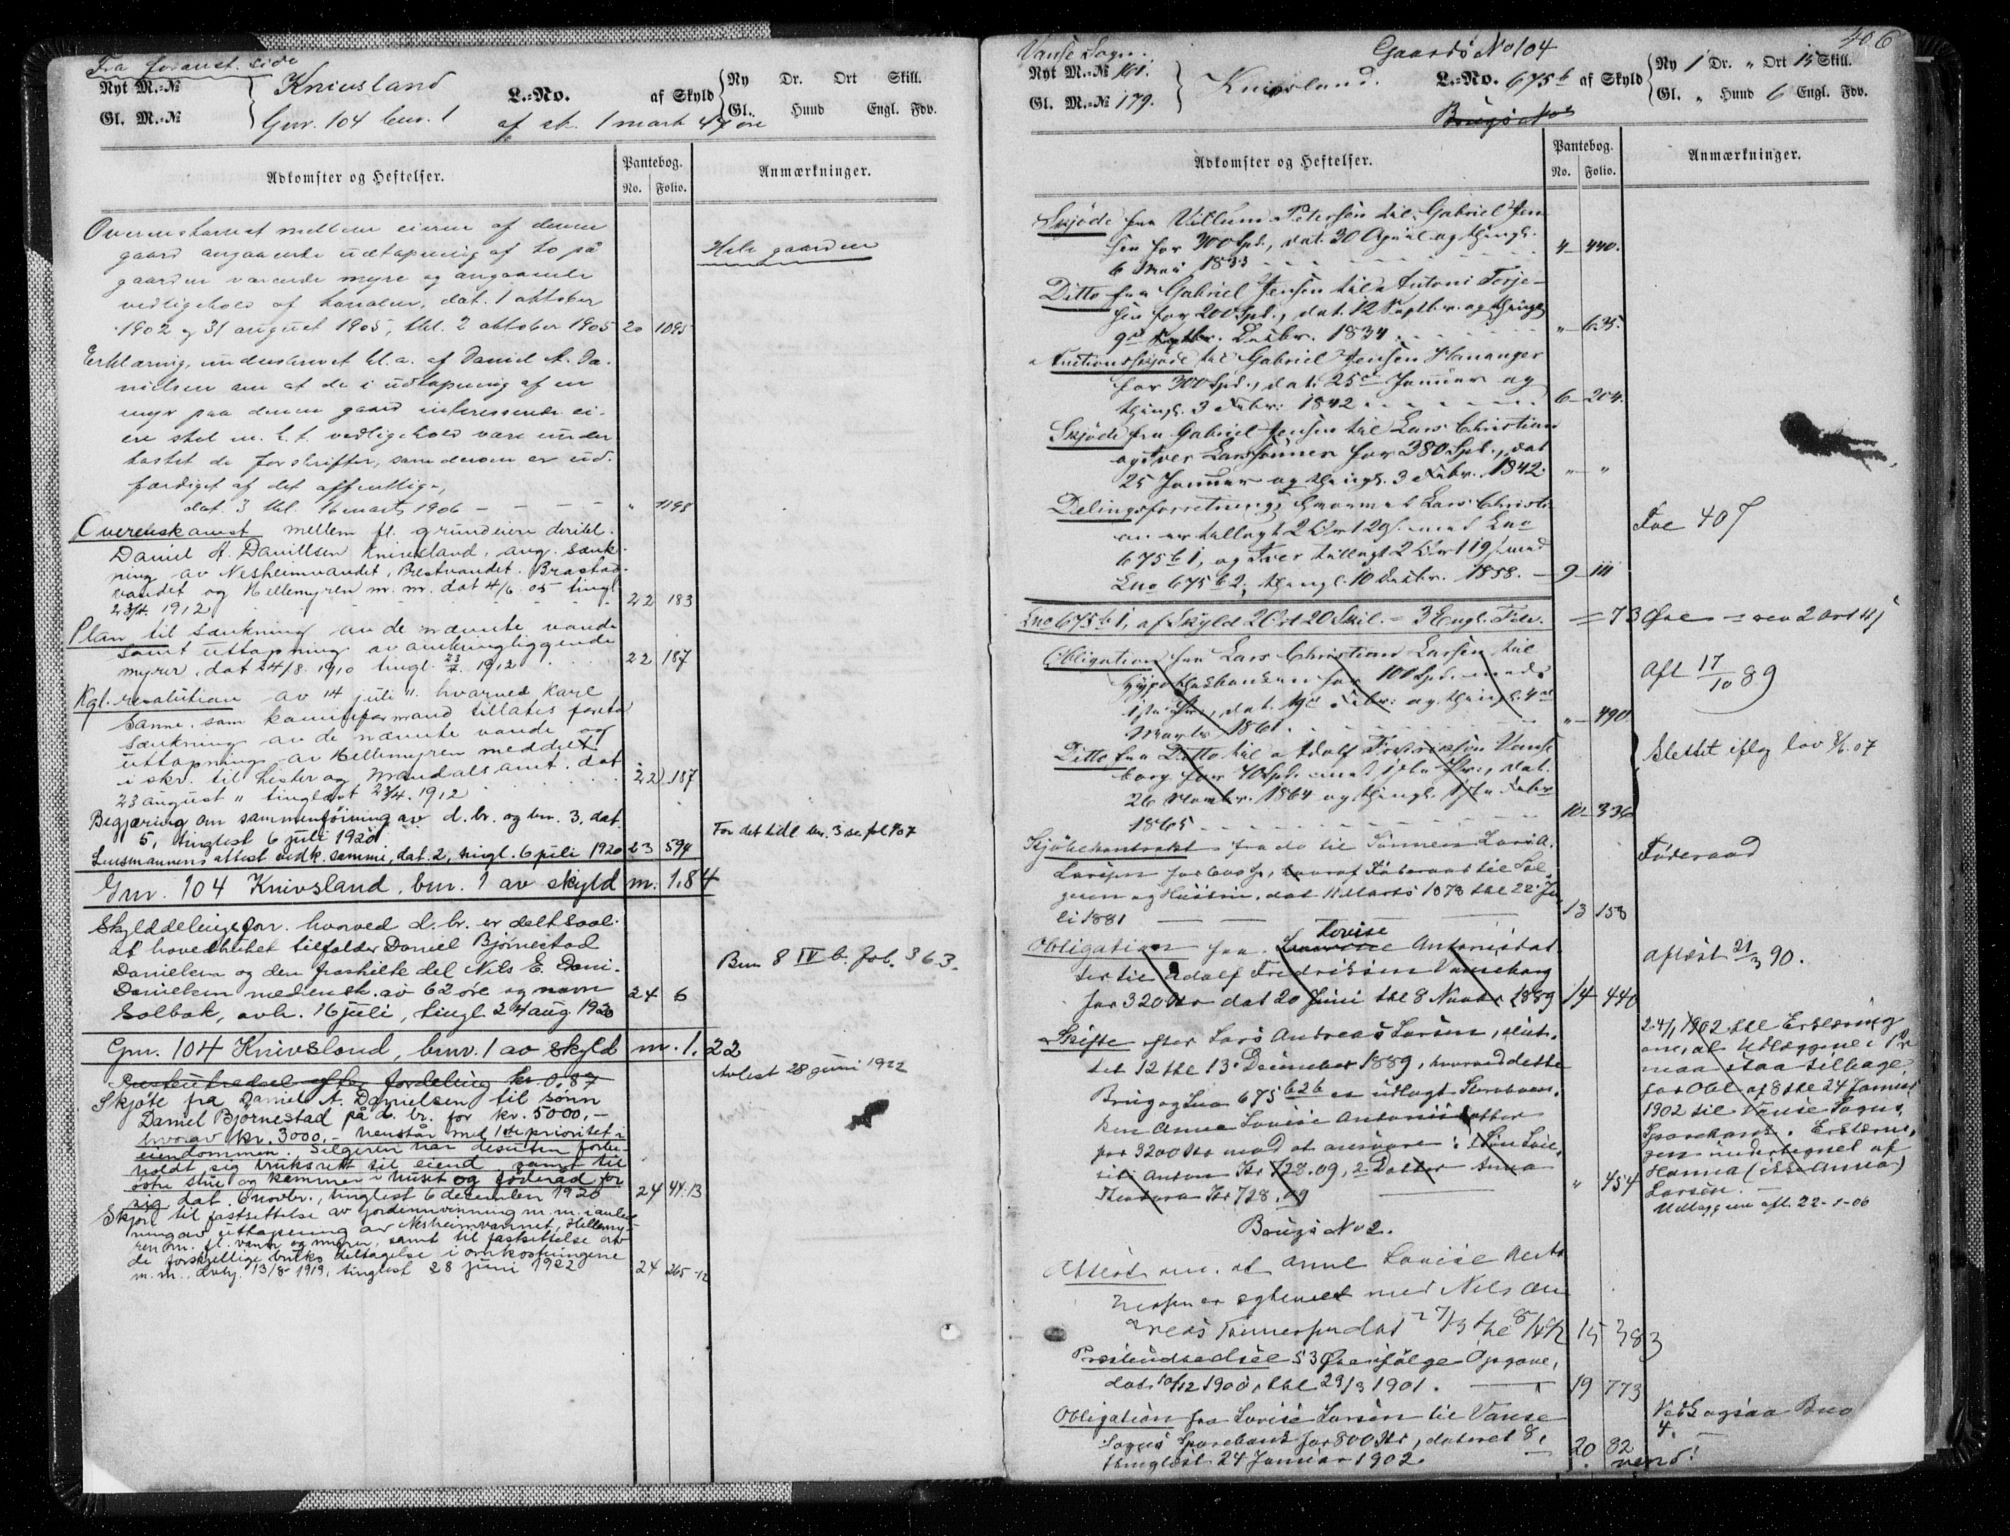 Fra foranst. side
Nyt M.-№
Gl. M.-№
Knivsland
Gnr. 104 bnr. 1
L.-No.
af sk. 1 mark 47 øre
af Skyld
Ny Dr. Ort Skill.
Gl. Hund Engl. Fdv.
Adkomster og Heftelser.
Pantebog.
No. Folio.
Anmærkninger.
Overenskomst mellem eierne af denne
gaard angaaende udtapning af to på
gaarden værende myre og angaaende
vedligehold af kanalen, dat. 1 oktober
1902 og 31 august 1905, thl. 2 oktober 1905 20 1095
Hele gaarden
Erklæring, underskrevet bl.a. af Daniel A. Da-
nielsen om at de i udtapning af en
myr paa denne gaard interesserede ei-
ere skal m. h. t. vedligehold være under
kastet de forskrifter, som derom er ud-
færdiget af det offentlige,
dat. 3 thl. 16 marts 1906 - - - " 1198
Overenskomst mellem fl. grundeiere deribl.
Daniel A. Daniellsen Knivsland, ang. sænk-
ning av Nesheimvandet, Prestvandet, Brastad-
vandet og Hellemyren m. m. dat 4/6 05 tingl
23/4 1912 22 183
Plan til sænkning av de nævnte vande
samt uttapning av omkringliggende
myrer, dat 24/8 1910 tingl. 1912 22 187
Kgl. resolution av 14 juli " hvorved Karl
Sanne som komiteformand tillates foreta
sænkning av de nævnte vande og
uttapning av Hellemyren meddelt
i skr. til Lister og Mandals amt. dat
23 august " tinglæst 23/4 1912 22 187
Begjæring om sammenføining av d. br. og bnr. 3, dat.
5, tinglest 6 juli 1920
Lensmannens attest vedk. samme, dat. 2, tingl. 6 juli 1920 23 594
For det tidl bnr. 3 se fol 407
Gnr. 104 Knivsland, bnr. 1 av skyld m. 1.84
Skylddelingsforr. hvorved d. br. er delt saal.
at hovedbølet tilfalder Daniel Bjørnestad
Danielsen og den fraskilte del Nils E. Dani-
Danielsen med ensk. av 62 øre og navn
Solbak, avh. 16 juli, tingl 24 aug 1920 24 6
Bnr 8 IV b. fol. 363.
Gnr. 104 Knivsland, bnr. 1 av skyld m. 1.22
Presteutredsel efter fordeling kr. 0.87
Avlest 28 juni 1922
Skjøte fra Daniel A. Danielsen til sønn
Daniel Bjørnestad på d. br. for kr. 5000,-
hvorav kr. 3000,- henstår med 1ste prioritet i
eiendommen. Selgeren har desuten forbe-
holdt sig bruksrett til eiend. samt til
østre stue og kammer i huset og føderad for
sig dat. 6 novbr., tinglest 6 december 1920 24 44.13
Skjøn til fastsettelse av jordinnvinning m. m. i anled
ning av uttapning av Nesheimvannet, Hellemy-
ren m. fl. vann og myrer, samt til fastsettelse av
de forskjellige bruks deltagelse i omkostningene
m. m., avhj. 13/8 1919, tinglest 28 juni 1922 24 265-12
406
Vanse Sogn.
Nyt M.-№ 161.
Gl. M.-№ 179.
Knivsland.
Gaards No 104
L.-No. 675 b af Skyld
Brugs No
Ny 1 Dr. " Ort 15 Skill.
Gl. " Hund 6 Engl. Fdv.
Adkomster og Heftelser.
Pantebog.
No. Folio.
Anmærkninger.
Skjøde fra Villum Petersen til Gabriel Jen
sen for 300 Spd., dat. 30 April og thingl.
6 Mai 1833 4 440.
Ditto fra Gabriel Jensen til Antoni Terje-
sen for 200 Spd., dat. 12 Septbr. og thingl
9de Decbr. 1834 " 635.
Auctionsskjøde til Gabriel Jensen Hananger
for 300 Spd., dat. 25de Januar og
thingl. 3 Febr. 1842 6 204.
Skjøde fra Gabriel Jensen til Lars Christian
og Iver Larssønner for 380 Spd., dat
25 Januar og thingl. 3 Febr. 1842. " "
Delingsforretning, hvorved Lars Christi
an er tillagt 2 Ort 20 s. med Lno
675 b 1, og Iver tillagt 2 Ort 19 s. med
Lno 675 b 2, thingl. 10 Decbr. 1858. 9 111
Fol 407
Lno 675 b 1, af Skyld 2 Ort 20 Skil. = 3 Engl. Fdv. = 73 Øre = rev 2 ort 4 s
Obligation fra Lars Christian Larsen til
Hypothekbanken for 100 Spd. med
1ste Pr., dat. Febr. og thingl. 4de
Marts 1861. " 490.
Afl 17/10 89
Ditto fra Ditto til Adolf Fredriksen Vanse
borg for 40 Spd. med 1ste Pr., dat.
26 Novbr. 1864 og thingl. 1ste Febr
1865 10 336
Slettet iflg lov 8/6.07
Kjøbekontrakt fra do til Sønnen Lars A.
Larsen for 600 Sp., hvoraf Føderaad til Sæl-
geren og Hustru, dat 11 Marts 1878 thl 22 Ju-
li 1881 13 158
Føderaad
Obligation fra Lovise Antonisdat-
ter til Adolf Fredriksen Vanseborg
for 320 Kr dat 20 Juni thl 8 Novbr 1889 14 440
Aflæst 21/3 90.
Skifte efter Lars Andreas Larsen, slut-
tet 12 thl 13 December 1889, hvorved dette
Brug og Lno 675 b 2 b er udlagt
ken Anne Lovise Antonisdatter
for 3200 Kr mod at ansvare: 1 Søn
Anton Kr 728.09, 2 Datter Anna
Theodora Kr 728,09 " 454
24/1 1902 thl Erklæring
om, at Udlæggene i
maa staa tilbage
for Obl af 8 thl 24 Januar
1902 til Vanse Sogns
Sparebank. Erklærin-
gen undertegnet af
Hanna (Anna)
Larsen.
Udlæggene afl. 22-1-06
Brugs No 2.
Attest om, at Anne Lovise
er egteviet med Nils An
dreas Tønnessen dat 27/3 thl 8/4 92 15 383
Presteudredsel 53 Øre ifølge Opgave,
dat. 10/12 1900, thl 29/3 1901. 19 773
Obligation fra Lovise Larsen til Vanse
Sogns Sparebank for 800 Kr, dateret 8,
thinglæst 24 Januar 1902. 20 82
Vedk. ogsaa Bno
4.
vend!